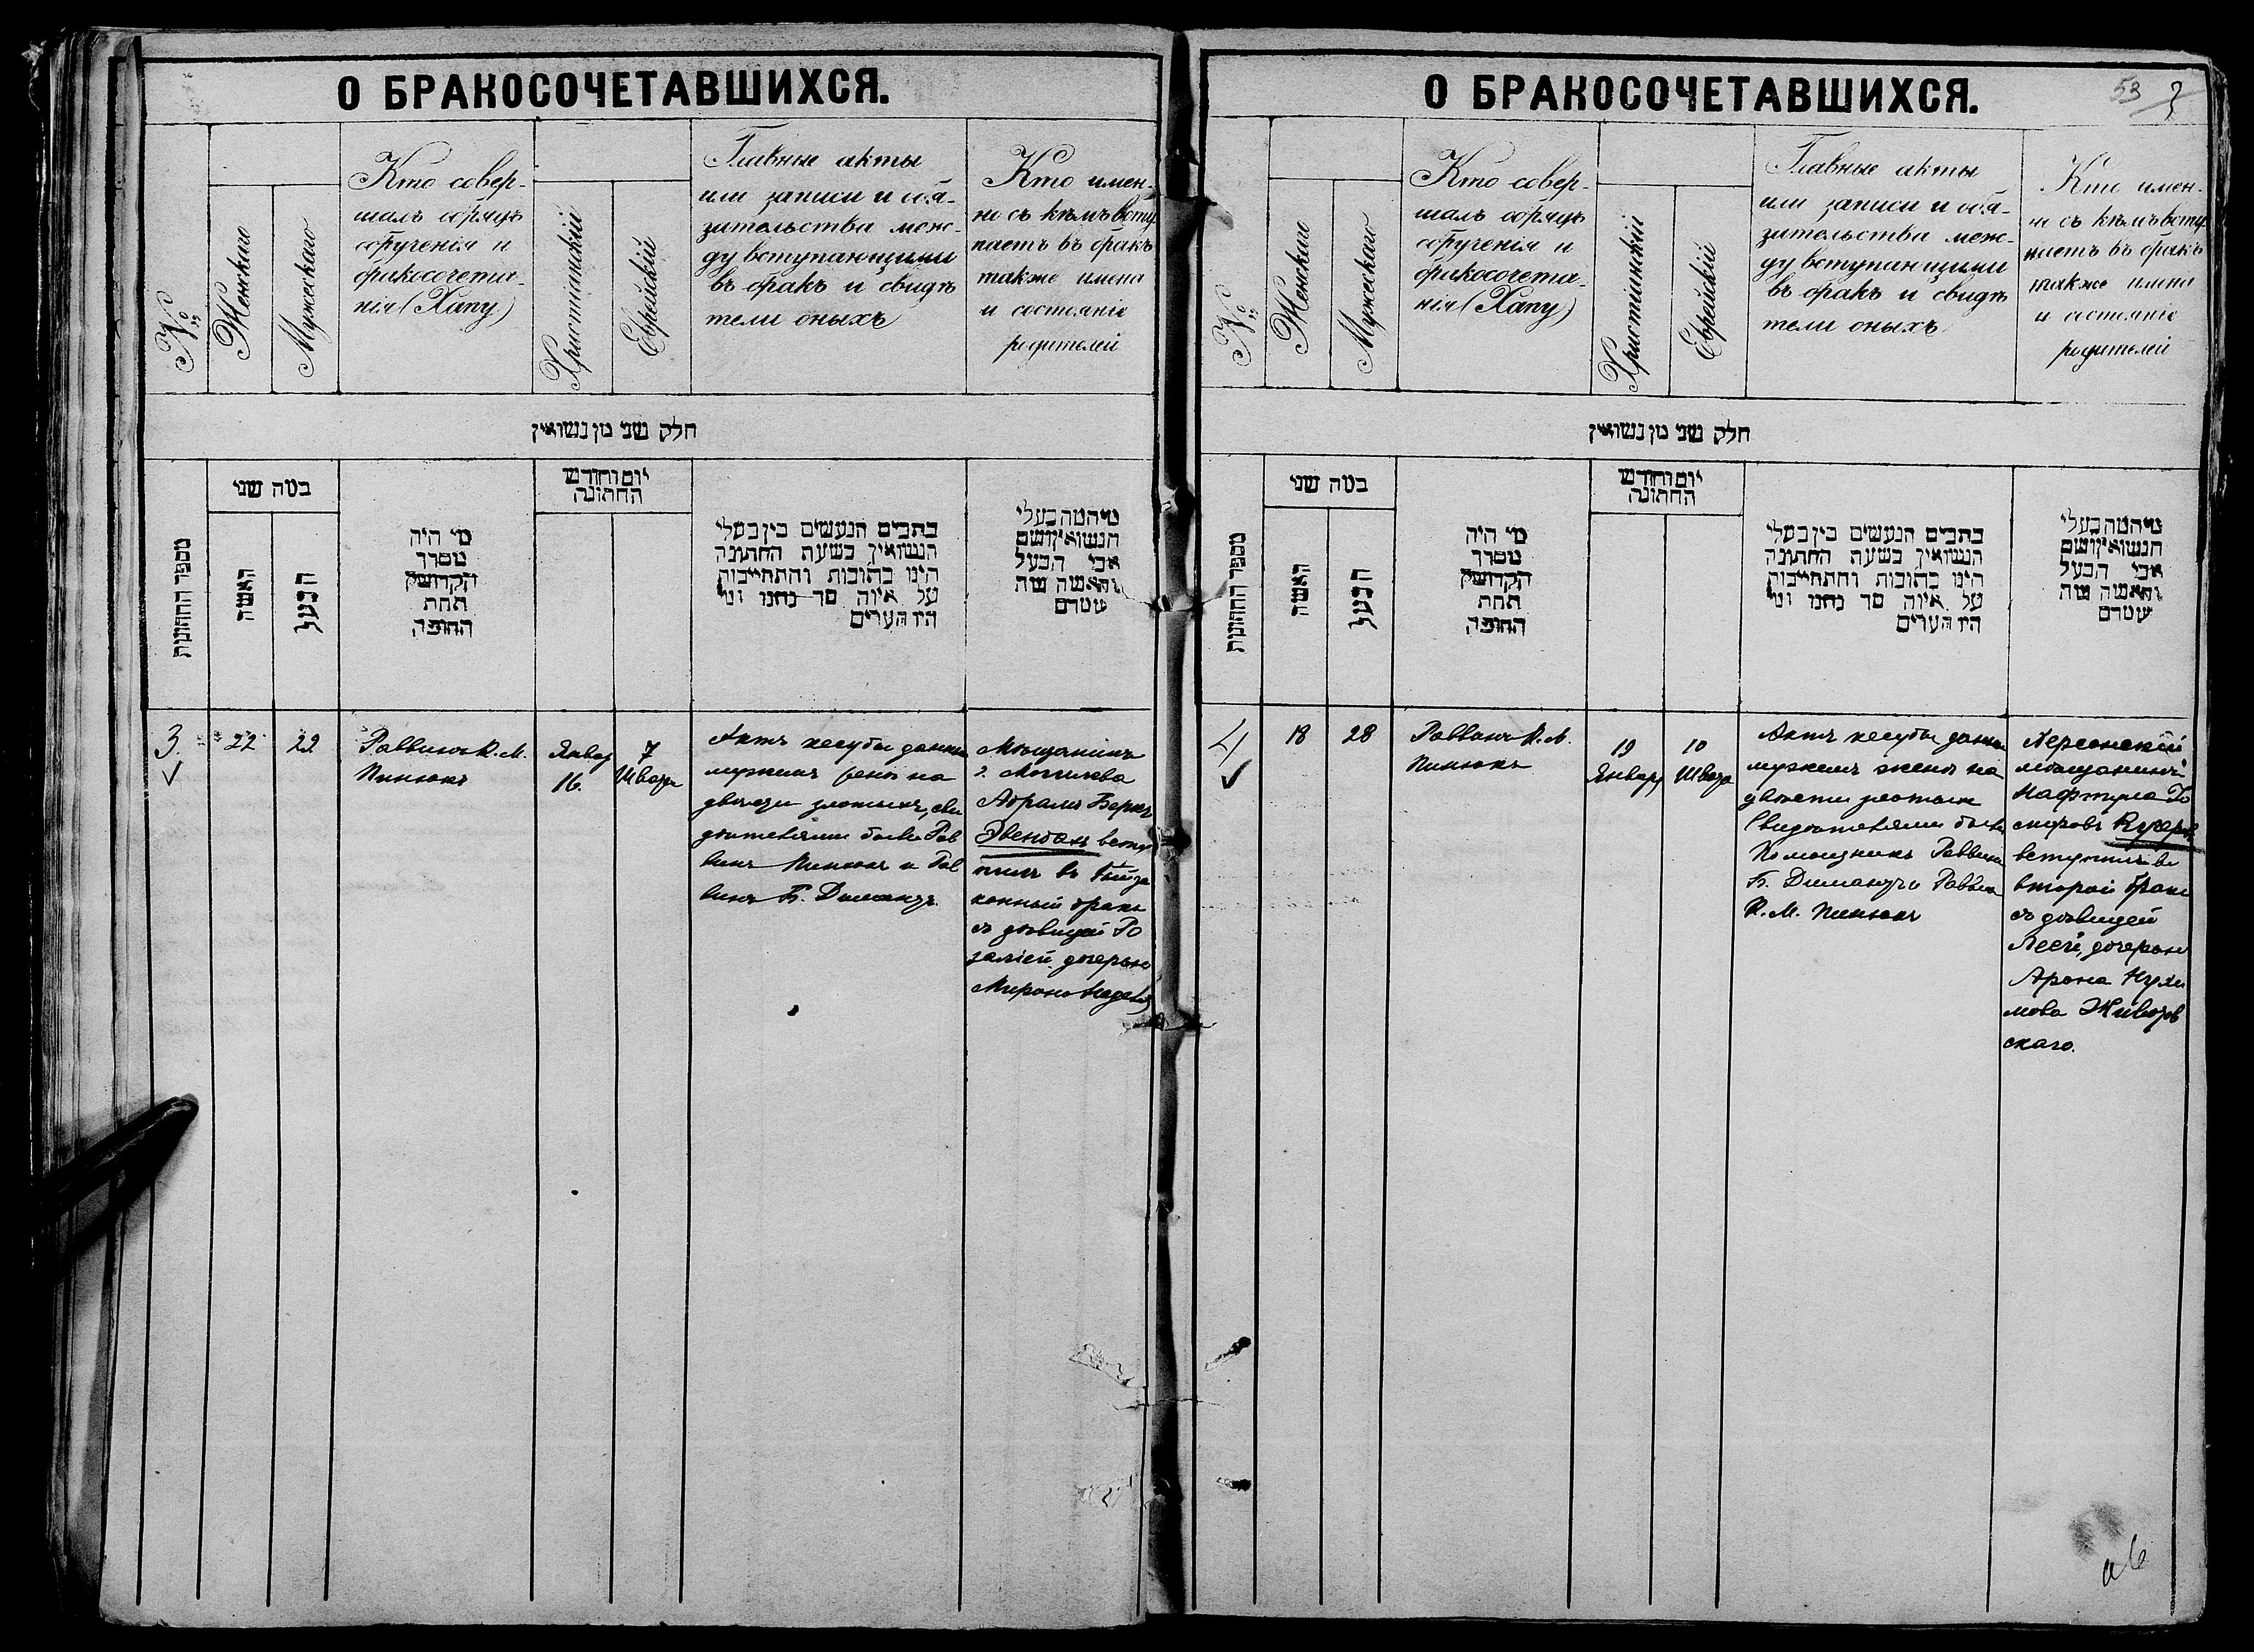 О БРАКОСОЧЕТАВШИХСЯ.
№
Женскаго
Мужескаго
Кто совер-
шалъ обрядъ
обрученія и
бракосочета-
нія (Хапу)
Христіанскій
Еврейскій
Главные акты
или записи и обя-
зательства меж-
ду вступающими
въ бракъ и свидѣ
тели оныхъ
Кто имен-
но съ кѣмъ всту
паетъ въ бракъ
также имена
и состояніе
родителей
חלק שני מן נשואין
מספר החתונות
כמה שני
האשה
הבעל
מי היה
מסדר
הקדושין
תחת
החופה
יום וחודש
החתונה
כתבים הנעשים בין בעלי
הנשואין בשעת החתונה
הינו כתובות והתחייבות
על איזה סך נתנו ומי
היו העדים
מי המה בעלי
הנשואין ושם
אבי הבעל
והאשה מה
שמרם
3.
22
22
Раввинъ К. М.
Пинюкъ
Январ
16.
7
Швата
Актъ кесубы данный
мужемъ женѣ на
двѣсти злотыхъ, сви
дѣтелями были Рав
винъ Пинюкъ и Рав
винъ Б. Димандъ.
Мѣщанинъ
г. Могилева
Абрамъ Берка
Эвенбахъ всту
пилъ въ 1ый за
конный бракъ
съ дѣвицей Ро
заліей дочерью
Мирона
О БРАКОСОЧЕТАВШИХСЯ.
53
№
Женскаго
Мужескаго
Кто совер-
шалъ обрядъ
обрученія и
бракосочета-
нія (Хапу)
Христіанскій
Еврейскій
Главные акты
или записи и обя-
зательства меж-
ду вступающими
въ бракъ и свидѣ
тели оныхъ
Кто имен-
но съ кѣмъ всту
паетъ въ бракъ
также имена
и состояніе
родителей
חלק שני מן נשואין
מספר החתונות
כמה שני
האשה
הבעל
מי היה
מסדר
הקדושין
תחת
החופה
יום וחודש
החתונה
כתבים הנעשים בין בעלי
הנשואין בשעת החתונה
הינו כתובות והתחייבות
על איזה סך נתנו ומי
היו העדים
מי המה בעלי
הנשואין ושם
אבי הבעל
והאשה מה
שמרם
4
18
28
Раввинъ К. М.
Пинюкъ
19
Январь
10
Швата
Актъ кесубы данный
мужемъ женѣ на
двѣсти злотыхъ
Свидѣтелями были
Помощникъ Раввина
Б. Димандъ и Раввинъ
К. М. Пинюкъ
Херсонскій
мѣщанинъ
Нафтула Іо
сифовъ Кучеръ
вступилъ во
второй бракъ
съ дѣвицей
Леей, дочерью
Арона Нухи
мова Животов
скаго.